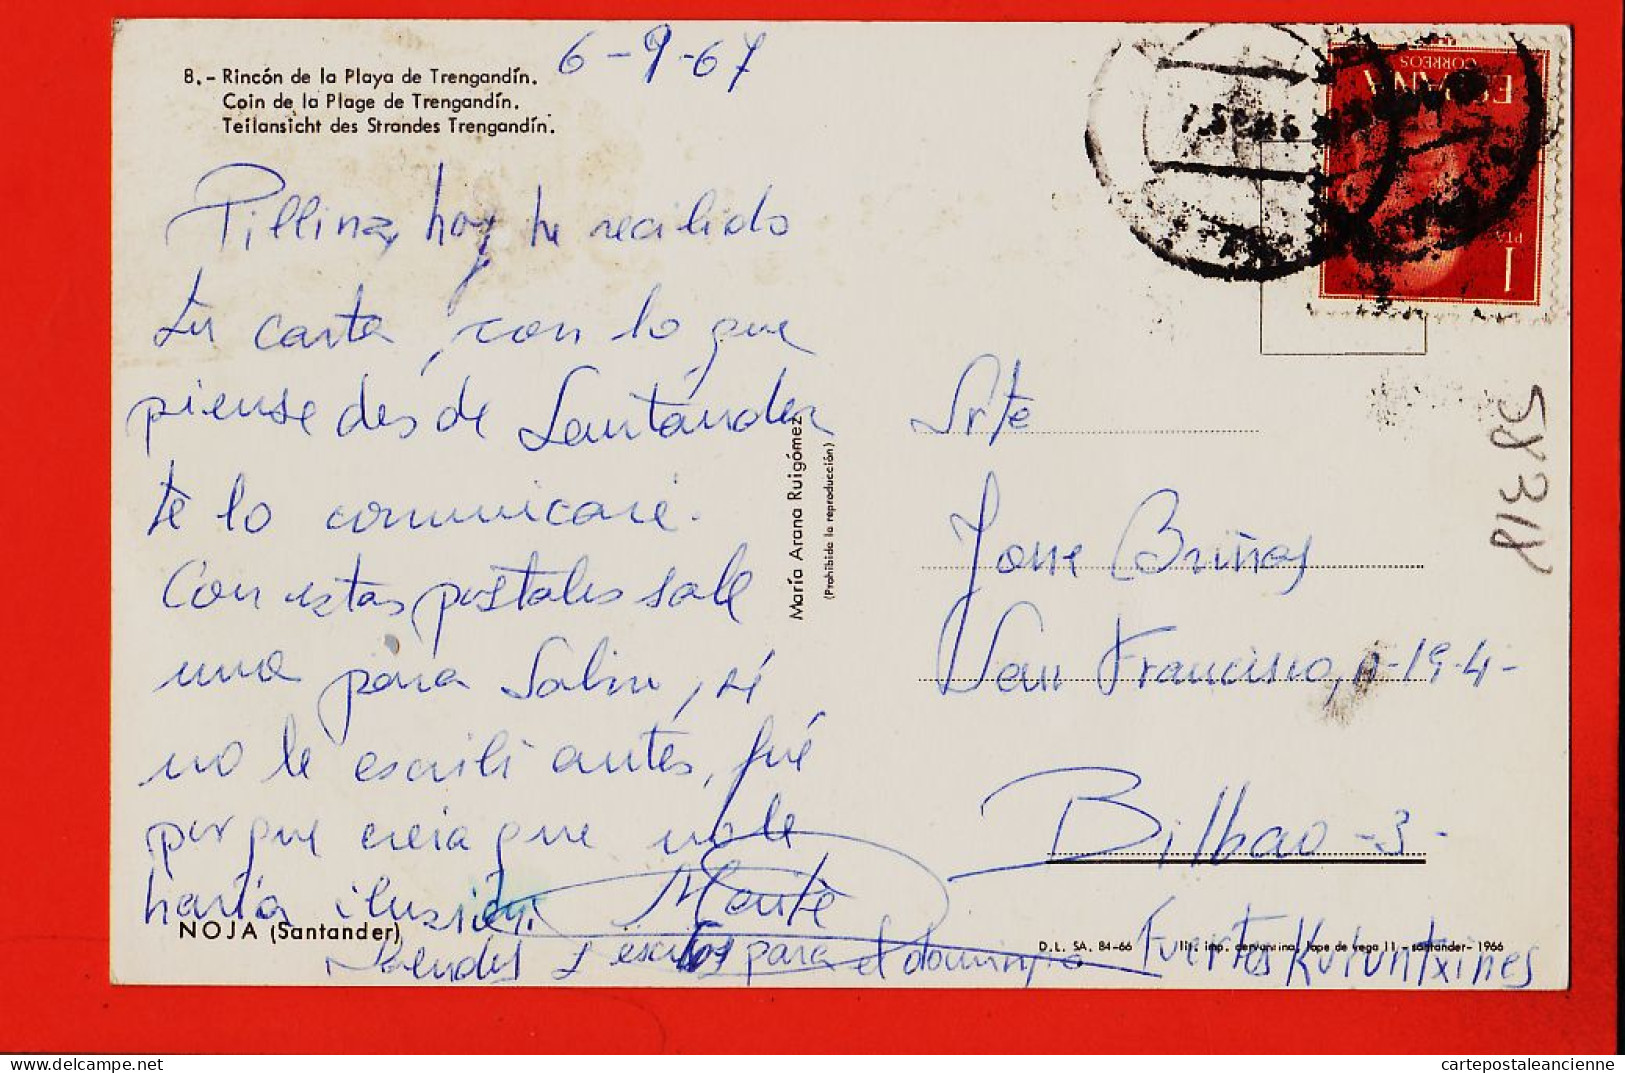 8.- Rincón de la Playa de Trengandín.
Coin de la Plage de Trengandín.
Teilansicht des Strandes Trengandín.
6-9-67
Pillina, hoy he recibido
tu carta, con lo que
piense desde Santander
te lo comunicaré.
Con estas postales sale
una para Sabin, si
no le escribí antes, fué
porque creia que no le
haría ilusión.
Maite
NOJA (Santander)
y para el domingo
María Arana Ruigómez
(Prohibida la reproducción)
ESPAÑA
CORREOS
1
PTA
Srte
Briñas
San Francisco, n-19-4-
Bilbao -3-
58318
D.L. SA. 84-66 lit. imp. cervantina, lope de vega 11 - santander- 1966
Fuertes Kutuntxines
cartepostaleancienne